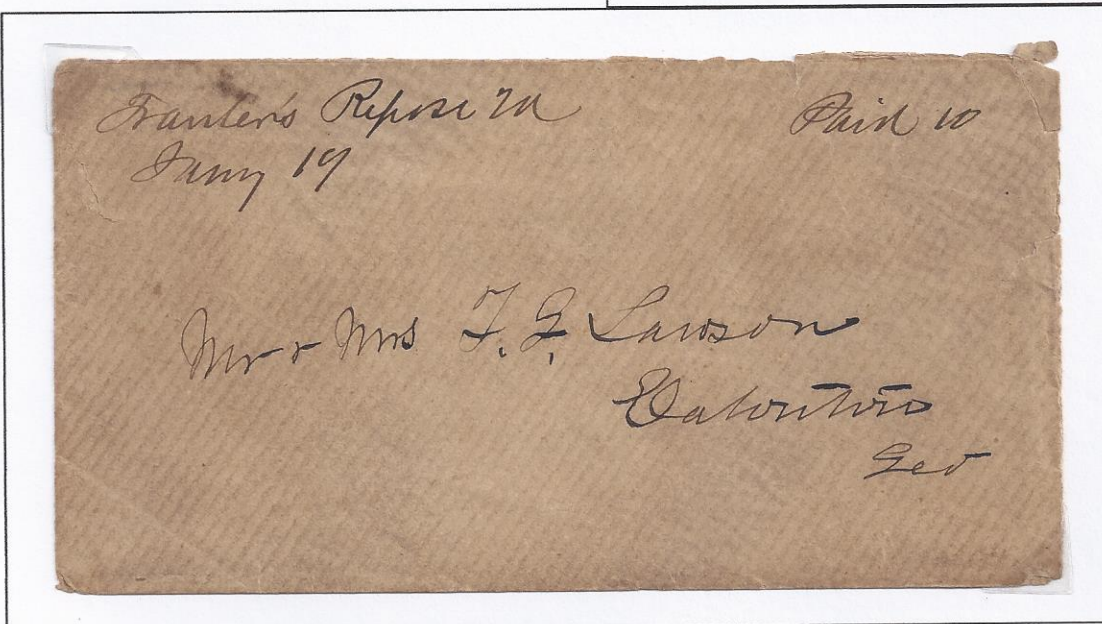 Traveler's Repose Va
Jany 19
Paid 10
Mr & Mrs T. G. Lawson
Eatonton
Geo